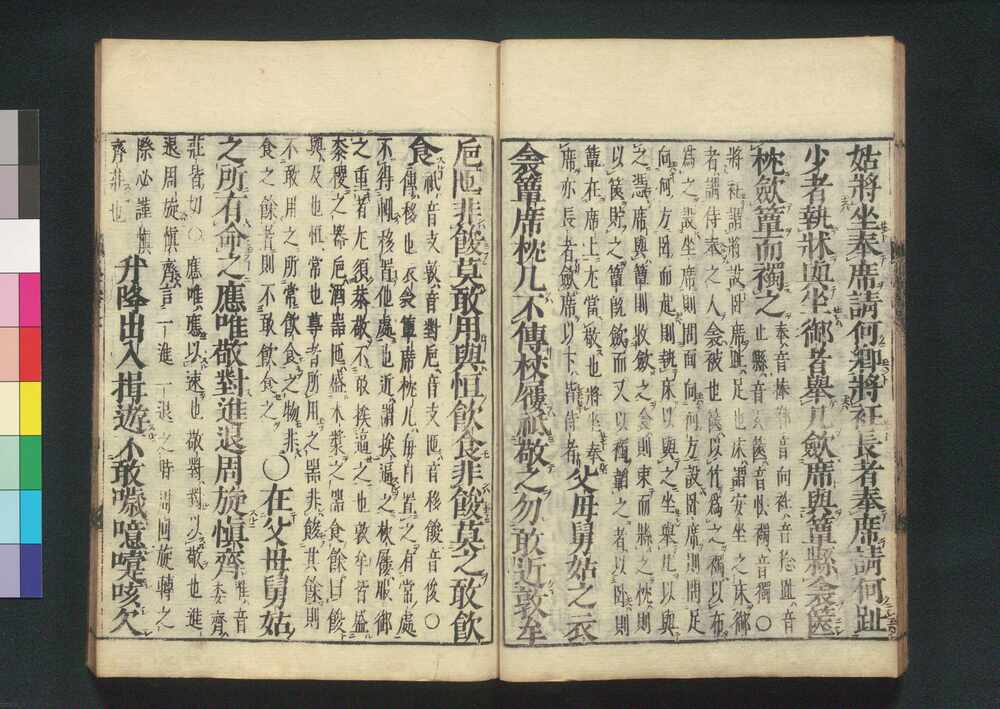 姑將坐奉席請何鄉將衽長者奉席請何趾
少者執牀與坐御者舉几歛席與簟縣衾篋
枕歛簟而襡之
奉音捧鄉音向衽音稔趾音
止縣音玄篋音怯襡音獨〇
將衽謂將設卧席趾足也床謂安坐之床御
者謂侍奉之人衾被也篋以竹為之襡以布
為之設坐席則問面向何方設卧席則問足
向何方卧而起則執床以與之坐舉几以與
之憑席與簟則收歛之衾則束而縣之枕則
以篋貯之簟旣歛而又以襡韜之者以卧則
簟在席上尤當敬也將坐奉
席亦長者歛席以下皆侍者
父母舅姑之衣
衾簟席枕几不傳杖屨祇敬之勿敢近敦牟
巵匜非餕莫敢用與恒飲食非餕莫之敢飲
食
傳移也
祇音支敦音對巵音支匜音移餕音後〇
衣衾簟席枕几毎日置之有常處
不得輙移置他處也近謂挨逼之杖屨服御
之重者尤須恭敬不敢挨逼之也敦牟皆盛
黍稷之器巵酒器匜盛水漿之器食餘曰餕
與及也恒常也尊者所用之器非餕其餘則
不敢用之所常飲食之物非
食之餘者則不敢飲食之
〇在父母舅姑
之所有命之應唯敬對進退周旋愼齊
唯音
委齊
莊皆切〇應唯應以速也敬對對以敬也進
退周旋愼齊言一進一退之時周回旋轉之
際必謹愼
齊莊也
升降出入揖遊不敢噦噫嚏咳欠